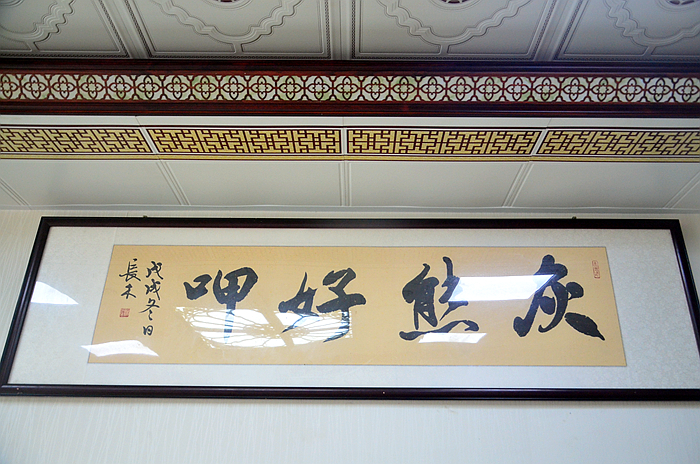 灰熊好呷
戊戌冬日
長木